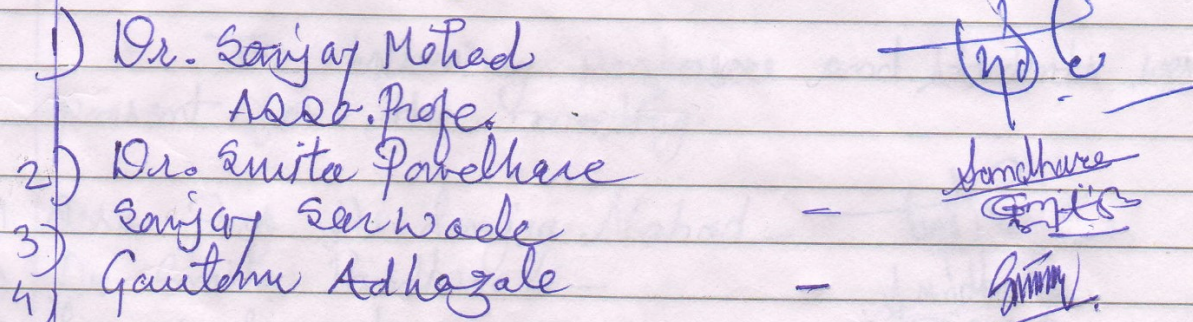 1) Dr. Sanjay Mohad
Asso. Profe.
2) Dr. Smita Pandhare Sandhare
3) Sanjay Sarwade -
4) Gautam Adhagale -